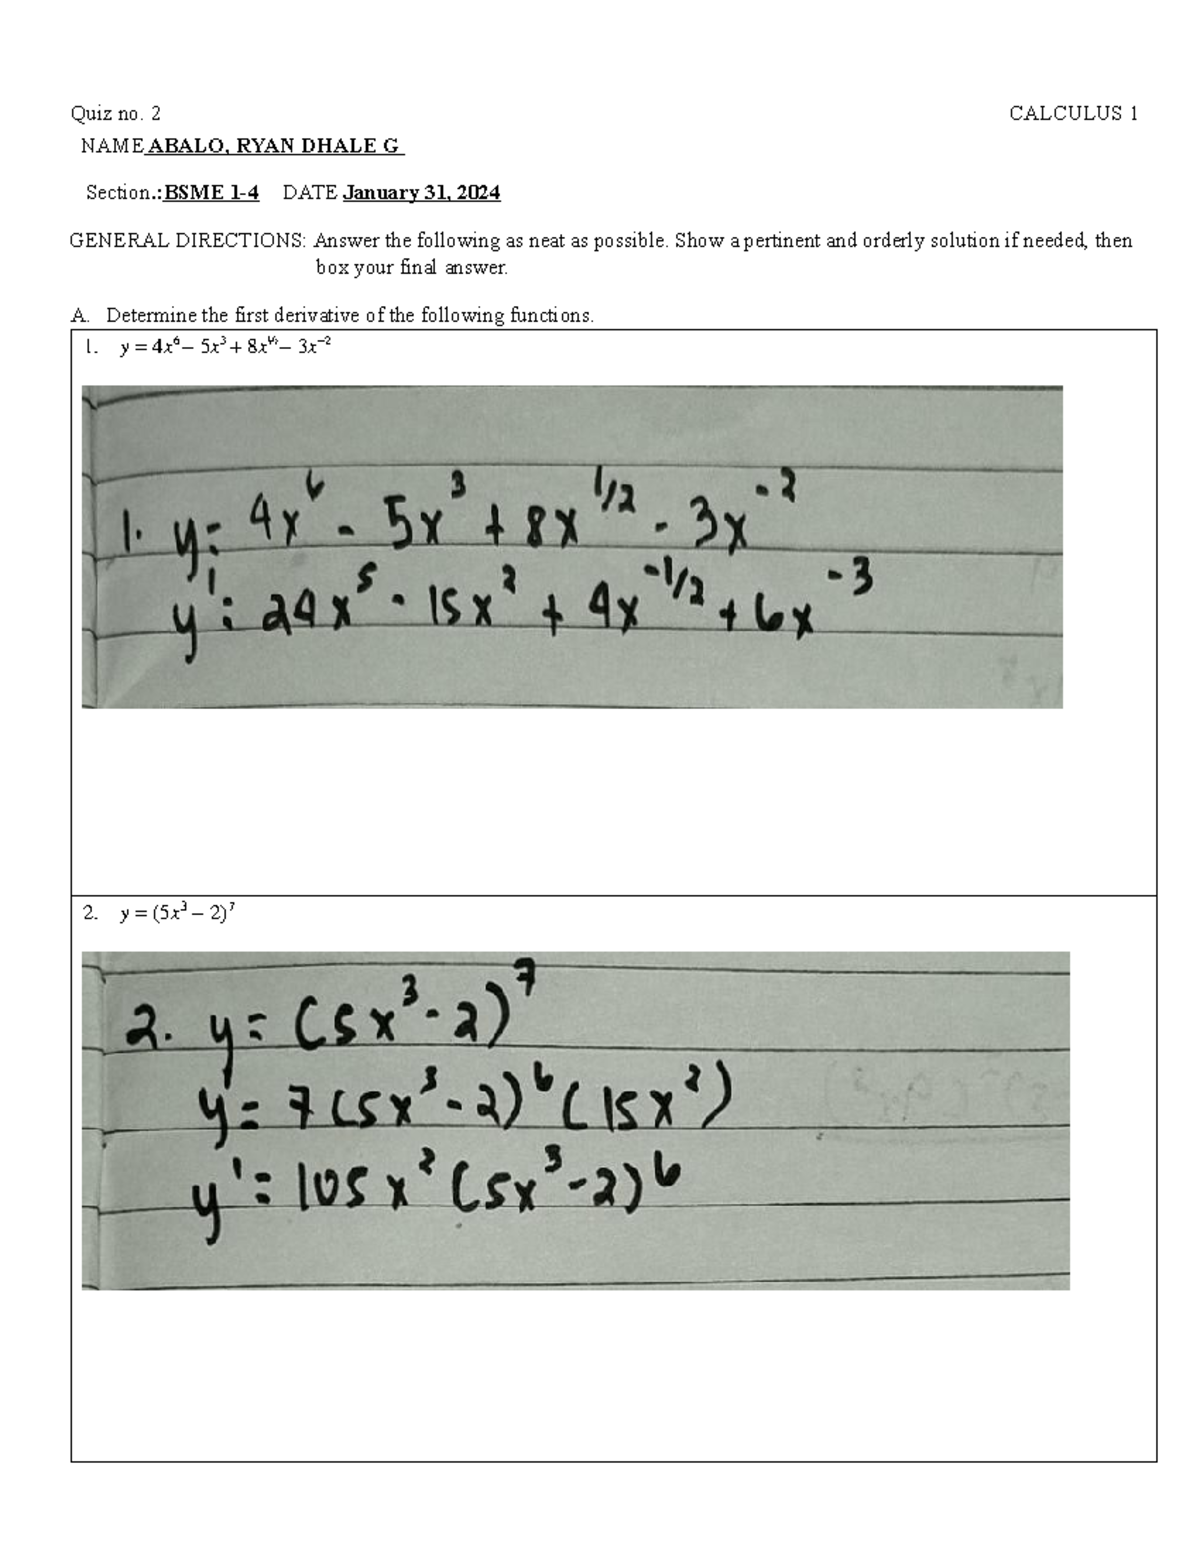 Quiz no. 2 CALCULUS 1
NAME ABALO, RYAN DHALE G
Section.: BSME 1-4 DATE January 31, 2024
GENERAL DIRECTIONS: Answer the following as neat as possible. Show a pertinent and orderly solution if needed, then
box your final answer.
A. Determine the first derivative of the following functions.
1. y = 4x⁶ – 5x³ + 8x^½ – 3x⁻²
1. y = 4x⁶ - 5x³ + 8x^1/2 - 3x⁻²
y' = 24x⁵ - 15x² + 4x^-1/2 + 6x⁻³
2. y = (5x³ – 2)⁷
2. y = (5x³ - 2)⁷
y' = 7(5x³ - 2)⁶ (15x²)
y' = 105x² (5x³ - 2)⁶